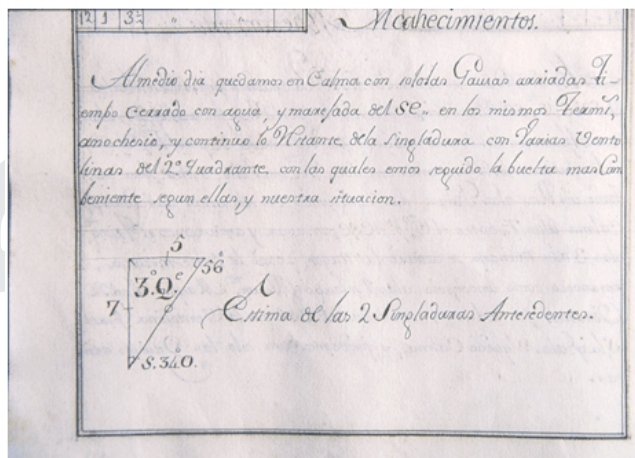 12 1 3½ " "
Acahecimientos.
Almedio dia quedamos en Calma con sololas Gavias arriadas Ti-
empo Cerrado con agua, y marejada del SE,, en los mismos Termis,
anochecio, y continuo lo Restante dela singladura con Varias Vento
linas del 2º Quadrante, con las quales emos seguido la buelta mas Com
beniente segun ellas, y nuestra situacion.
5
56º
3.º Q.e
7
S.34O.
Estima de las 2 Singladuras Antesedentes.